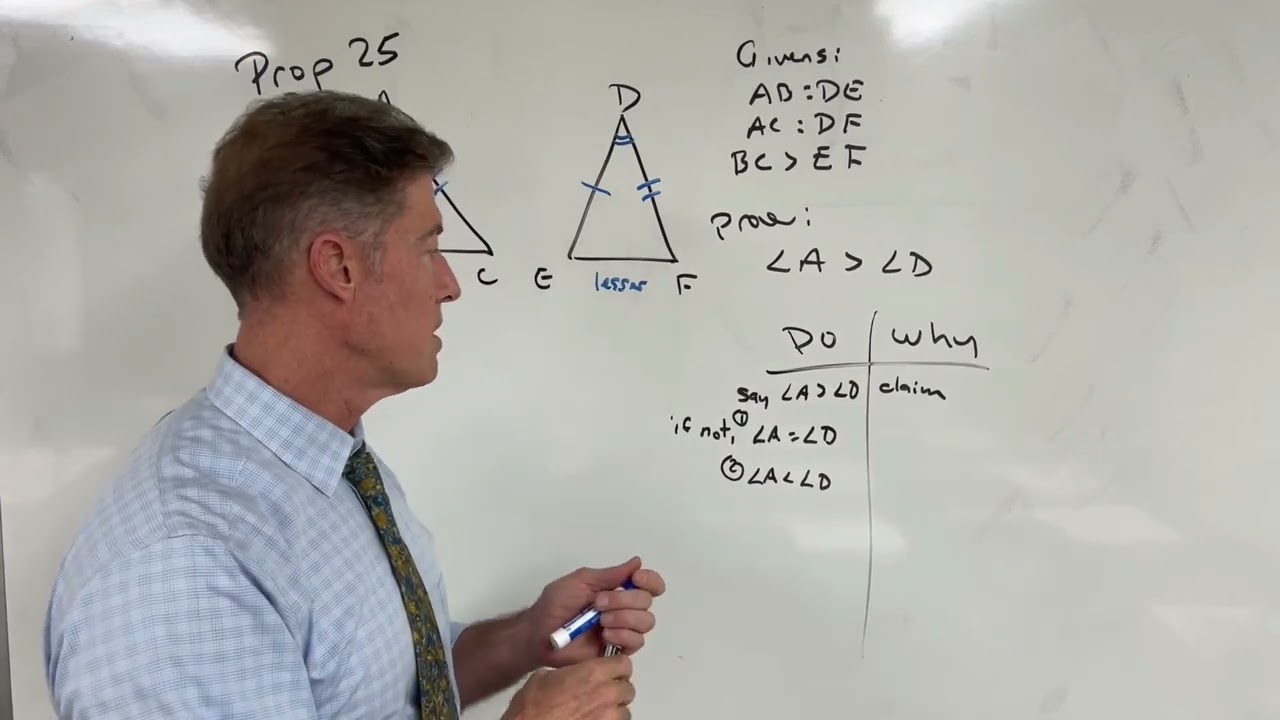 Prop 25
A
D
C
E
lesser
F
Givens:
AB = DE
AC = DF
BC > EF
Prove:
∠A > ∠D
Do
Why
say ∠A > ∠D
claim
if not, ① ∠A = ∠D
② ∠A < ∠D